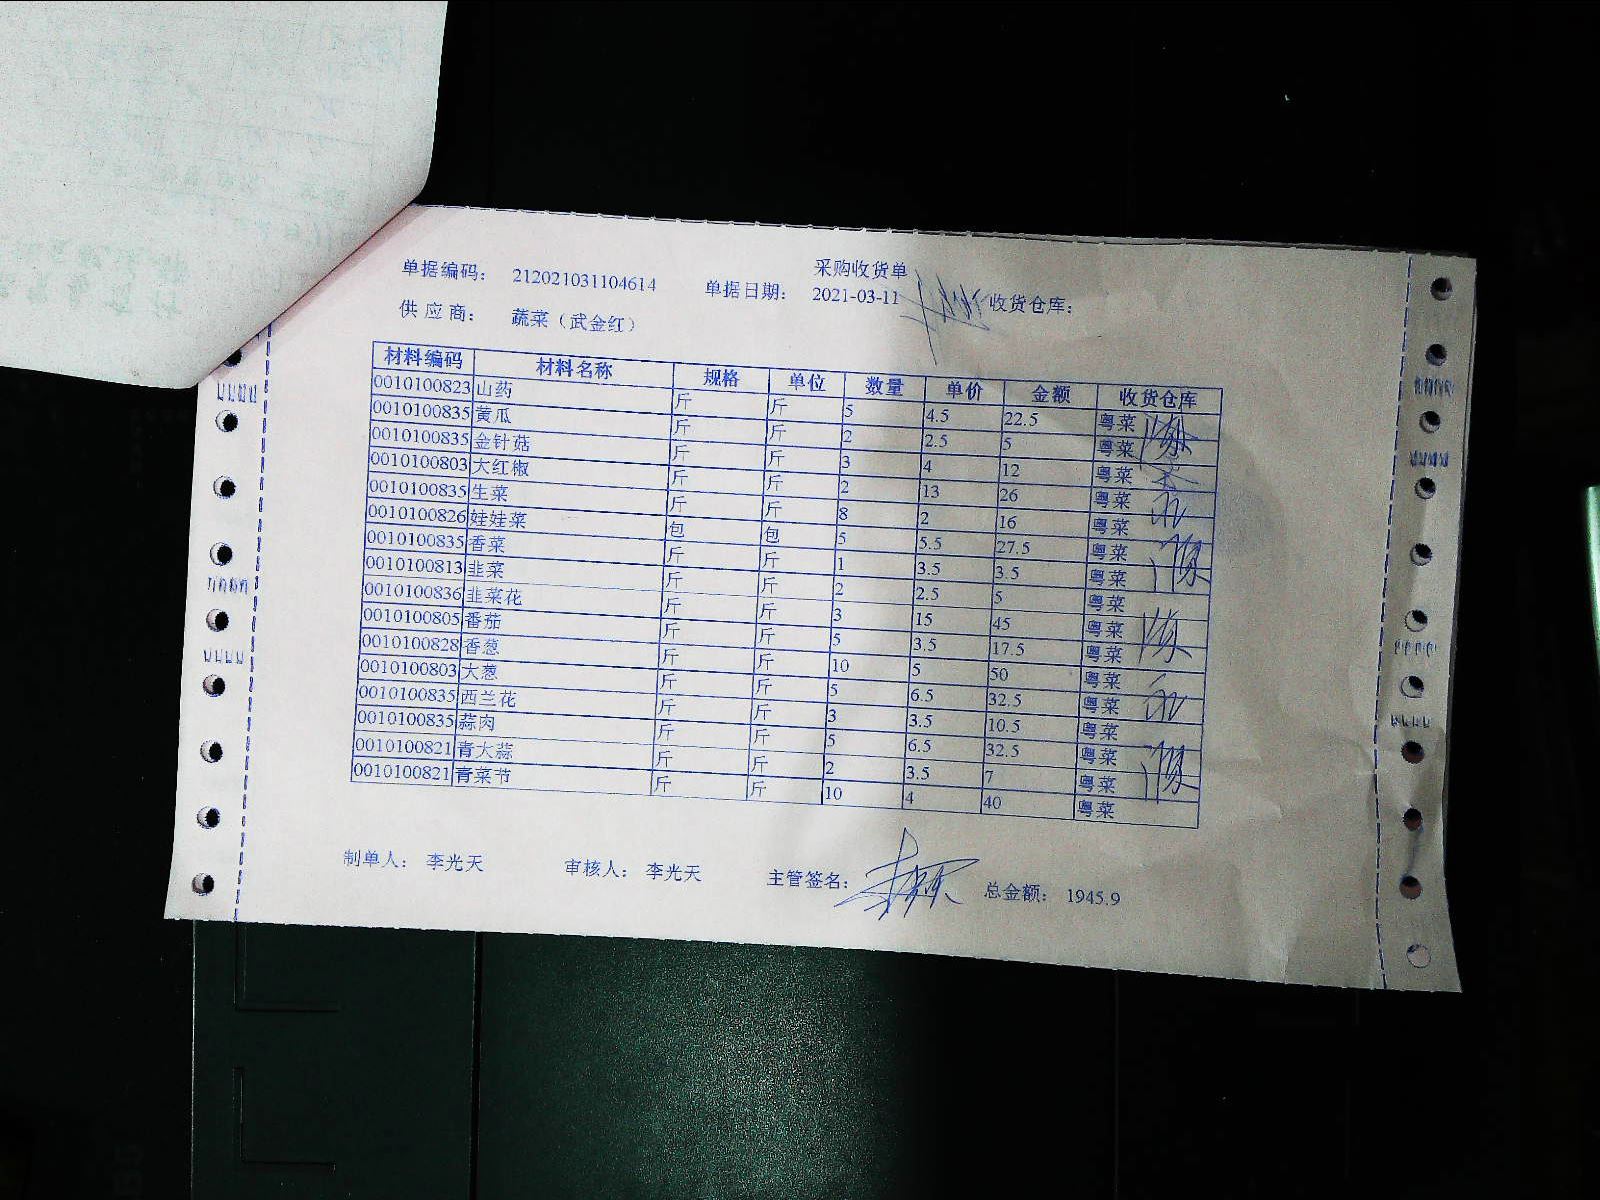 采购收货单
单据编码： 212021031104614 单据日期： 2021-03-11 收货仓库：
供应商： 蔬菜（武金红）
材料编码 材料名称 规格 单位 数量 单价 金额 收货仓库
0010100823 山药 斤 斤 5 4.5 22.5 粤菜
0010100835 黄瓜 斤 斤 2 2.5 5 粤菜
0010100835 金针菇 斤 斤 3 4 12 粤菜
0010100803 大红椒 斤 斤 2 13 26 粤菜
0010100835 生菜 斤 斤 8 2 16 粤菜
0010100826 娃娃菜 包 包 5 5.5 27.5 粤菜
0010100835 香菜 斤 斤 1 3.5 3.5 粤菜
0010100813 韭菜 斤 斤 2 2.5 5 粤菜
0010100836 韭菜花 斤 斤 3 15 45 粤菜
0010100805 番茄 斤 斤 5 3.5 17.5 粤菜
0010100828 香葱 斤 斤 10 5 50 粤菜
0010100803 大葱 斤 斤 5 6.5 32.5 粤菜
0010100835 西兰花 斤 斤 3 3.5 10.5 粤菜
0010100835 蒜肉 斤 斤 5 6.5 32.5 粤菜
0010100821 青大蒜 斤 斤 2 3.5 7 粤菜
0010100821 青菜节 斤 斤 10 4 40 粤菜
制单人： 李光天 审核人： 李光天 主管签名： 总金额： 1945.9